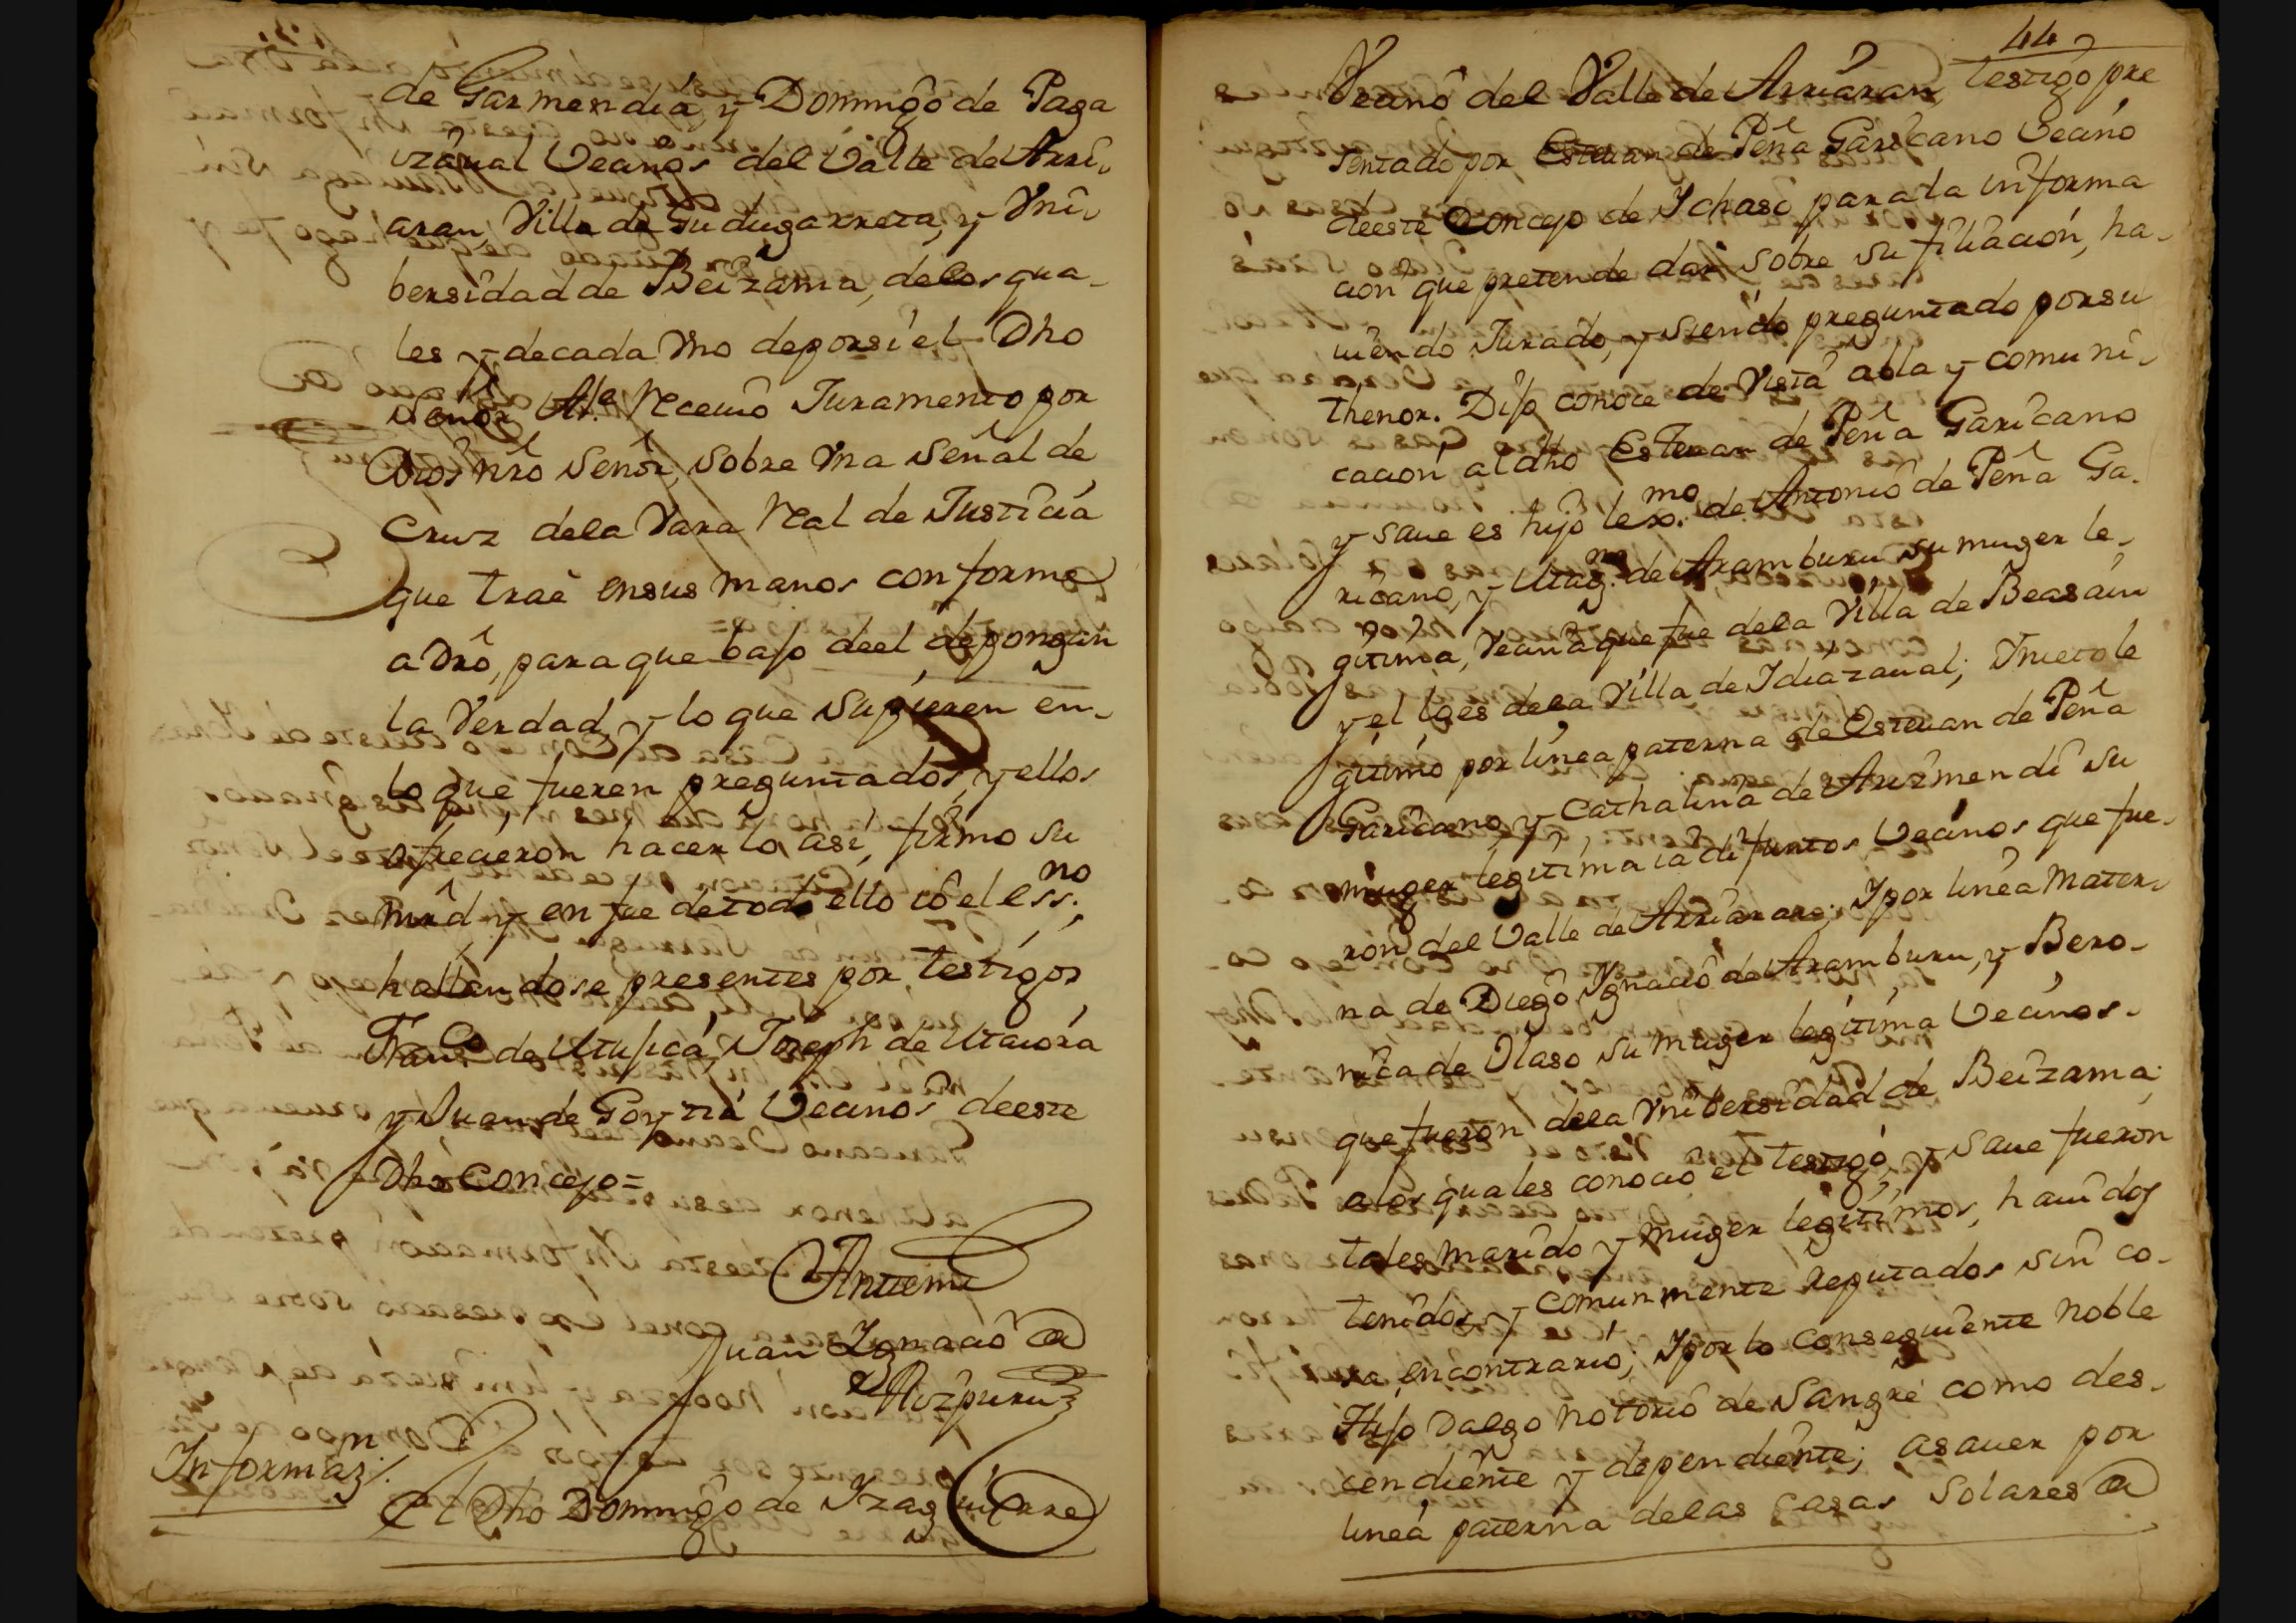 de Garmendia, y Domingo de Paga
izaual Vecinos del Valle de Arri-
aran, Villa de Gudugarreta, y Vni-
bersidad de Beizama, delos qua-
les y decada Vno deporsi el Dho
Señor Al.e Receuio Juramento por
Dios nrô Señor, sobre Vna Señal de
Cruz dela Vara Real de Justicia
que trae ensus manos conforme
a Drô, para que bajo deel depongan
la Verdad, y lo que supieren en-
lo que fueren preguntados, y ellos
ofrecieron hacerlo asi, firmo su
mrd y en fee detodo ello io el ess.no
hallandose presentes por testigos
Fran.co de Joseph de
y Juan de Goytia Vecinos deeste
Dho Concejo=
Antemi
Juan Ignacio @
Aizpuru
Informaz.n
El Dho Domingo de Yzaguirre
44
Vecino del Valle de Arriaran, testigo pre
sentado por Esteuan de Peña Garicano Vecino
deeste Concejo de Ichaso para la informa
cion que pretende dar sobre su filiacion, ha-
uiendo Jurado, y siendo preguntado por su
thenor. Dijo conoce de Vista abla y comuni-
cacion al dho Esteuan de Peña Garicano
y saue es hijo lex.mo de Antonio de Peña Ga-
ricano, y de Aramburu su muger le-
gitima, Vecina que fue dela Villa de Beasain
y el lo es dela Villa de Idiazaual; Ynieto le
gitimo por linea paterna de Esteuan de Peña
Garicano, y Cathalina de Arizmendi su
muger legitima ia difuntos Vecinos que fue-
ron del Valle de Arriaran; Ypor linea Mater-
na de Diego Ygnacio de Aramburu, y Bero-
nica de Olaso su muger legitima Vecinos-
que fueron dela Vnibersidad de Beizama;
alos quales conocio el testigo, y saue fueron
tales marido y muger legitimos, hauidos
tenidos, y comunmente reputados sin co-
sa en contrario; Ypor lo conseguiente noble
Hijo Dalgo notorio de Sangre como des-
cendiente y dependiente; asauer por
linea paterna delas Casas Solares @